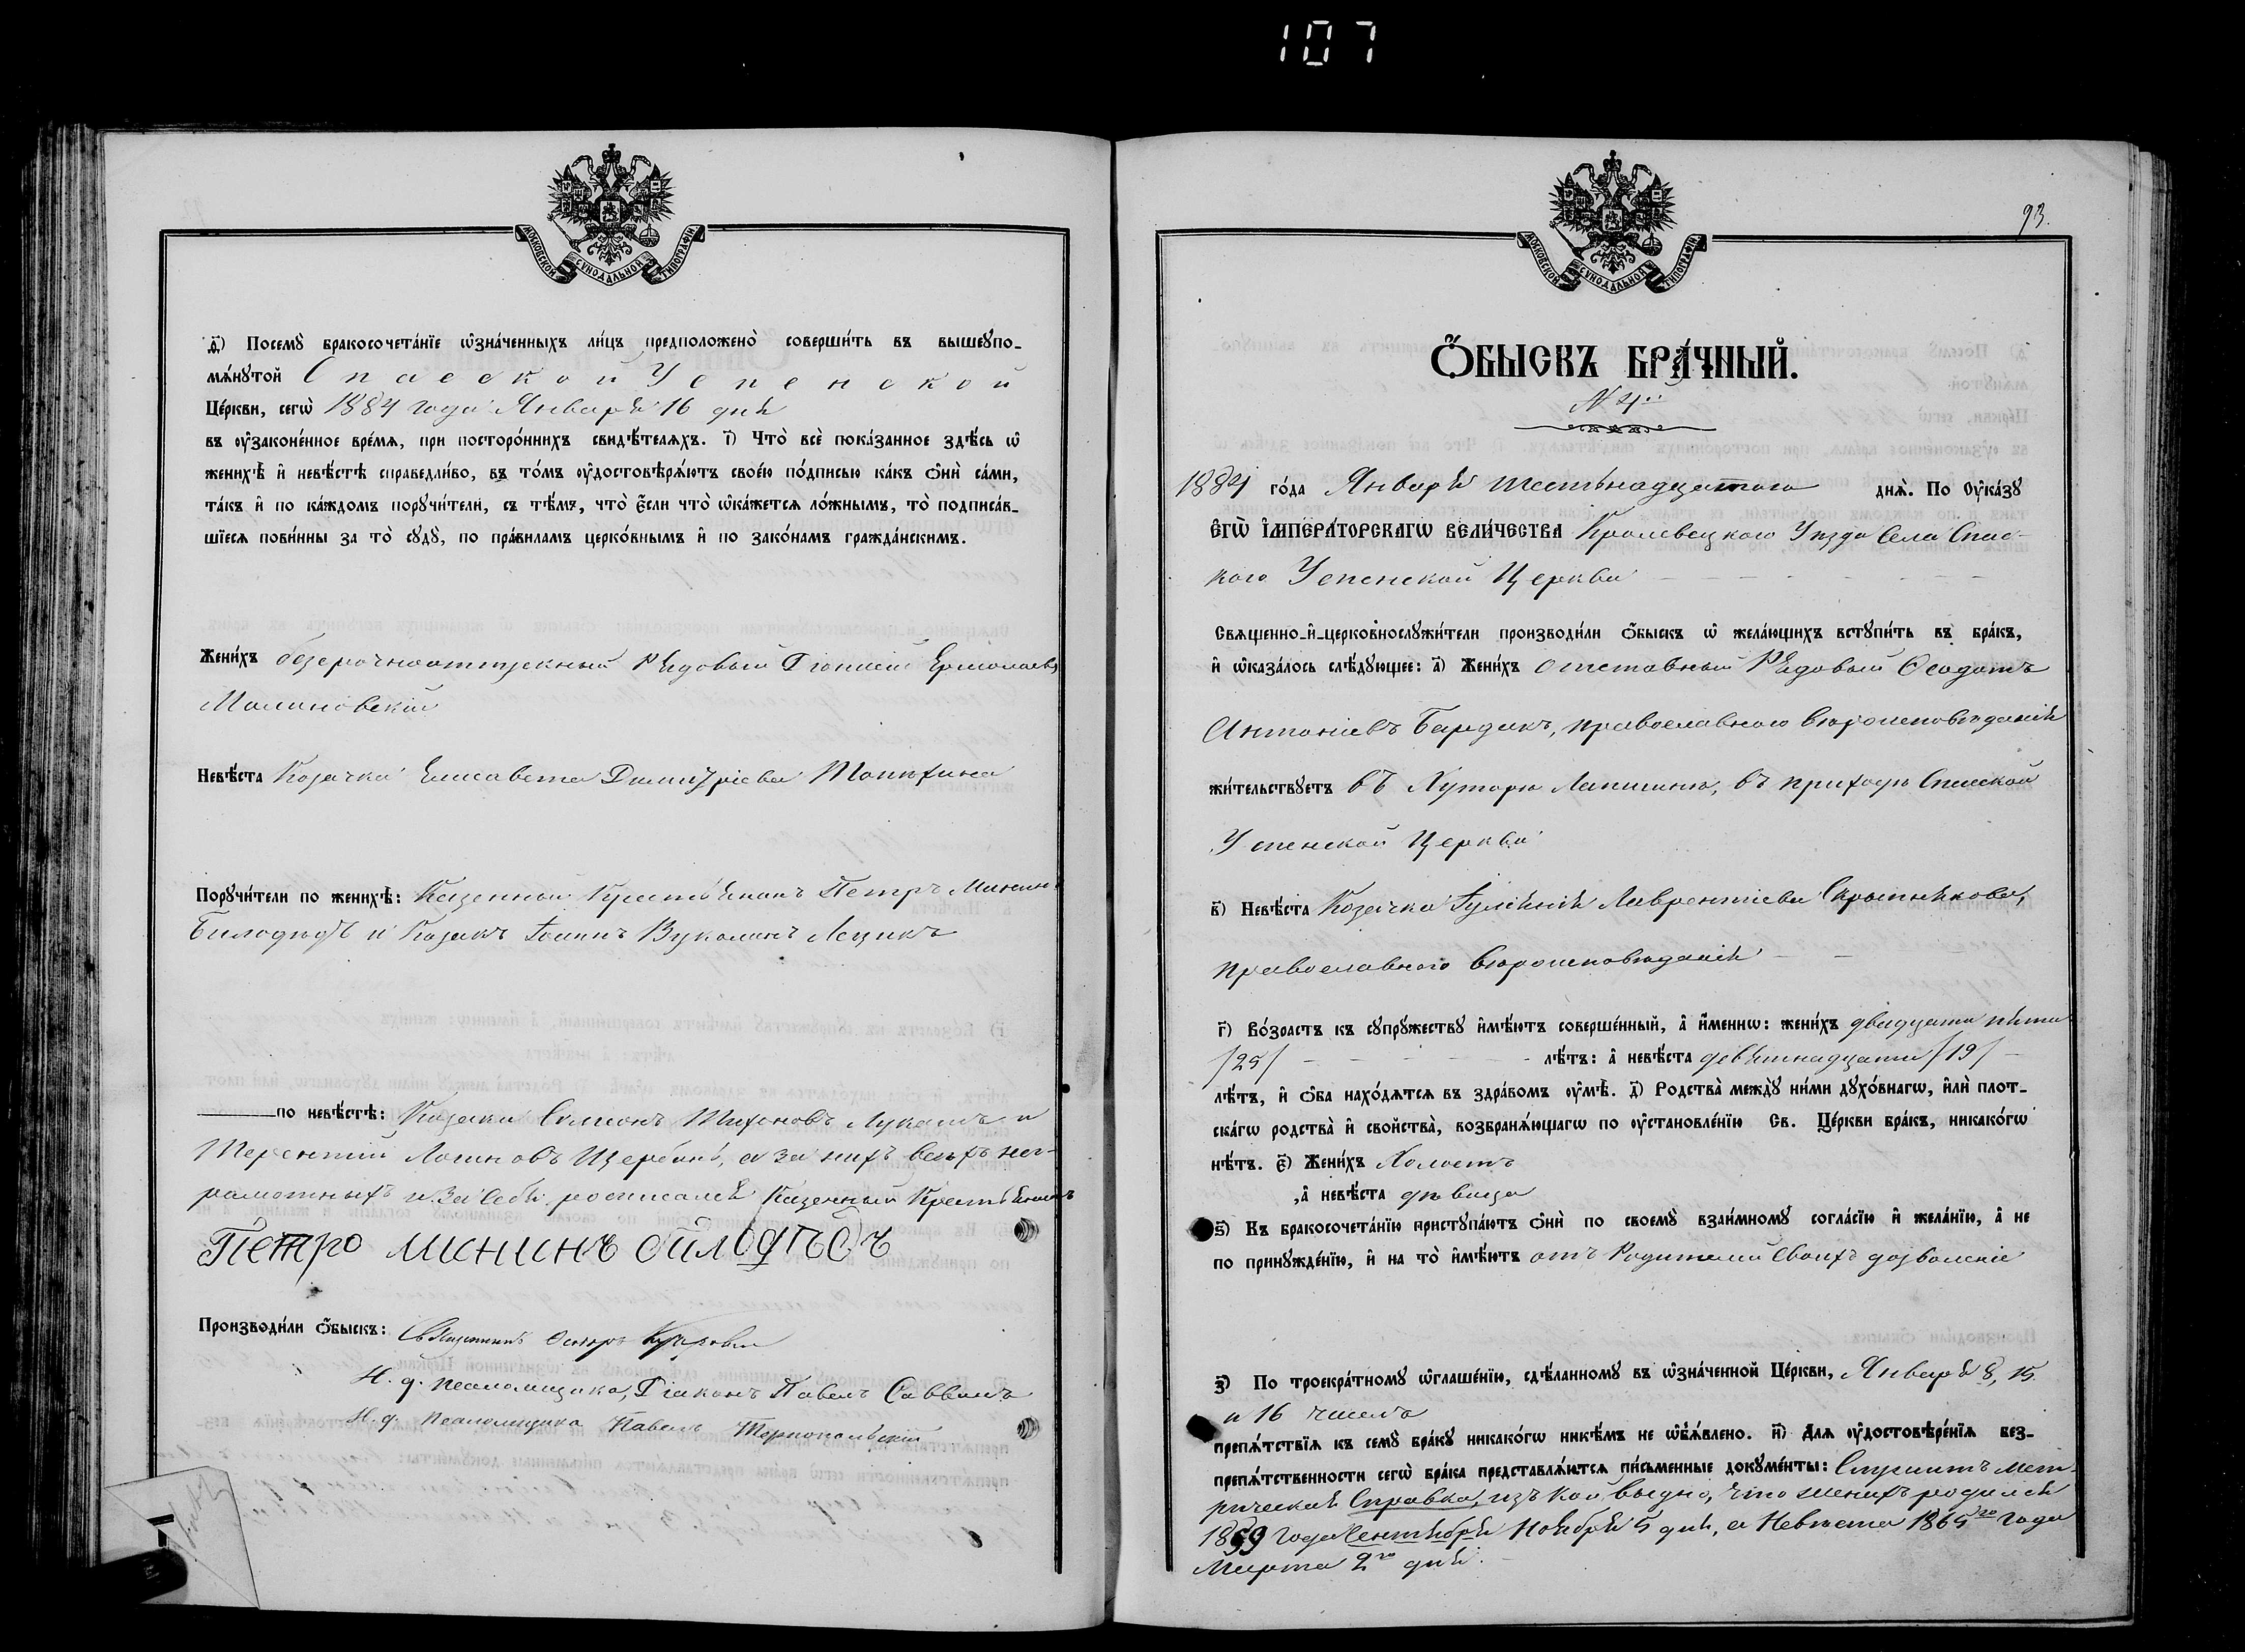 107
МОСКОВСКОЙ СѴНОДАЛЬНОЙ ТИПОГРАФІИ
д҃і) Посемꙋ̀ бракосочета́нїе ѡ҆зна́ченныхъ ли́цъ предположено̀ соверши́ть въ вышеꙋпо-
мѧ́нꙋтой Спасской Успенской
Це́ркви, сегѡ̀ 1884 года Января 16 дня
въ ᲂу҆законе́нное вре́мѧ, при посторо́ннихъ свидѣ́телѧхъ. і҃) Что̀ всѐ пока́занное здѣ́сь ѡ҆
женихѣ̀ и҆ невѣ́стѣ справедли́во, въ то́мъ ᲂу҆достовѣрѧ́ютъ свое́ю по́дписью ка́къ ѻ҆нѝ са́ми,
та́къ и҆ по ка́ждомъ порꙋчи́тели, съ тѣ́мъ, что̀ є҆́сли что̀ ѡ҆ка́жетсѧ ло́жнымъ, то̀ подписа́в-
шїесѧ пови́нны за то̀ сꙋдꙋ̀, по пра́виламъ церко́внымъ и҆ по зако́намъ гражда́нскимъ.
Жени́хъ безсрочноотпускный Рядовый Діонисій Ермолаевъ
Малиновскій
Невѣ́ста Козачка Елисавета Димитріева
Порꙋчи́тели по женихѣ̀: Казенный Крестьянинъ Петръ Мининъ
Билодѣдъ и Козакъ Іоаннъ Вуколинъ Лецикъ
по невѣ́стѣ: Козаки Симеонъ Тихоновъ Лукашъ и
Терентій Логиновъ Щербакъ, а за нихъ всѣхъ нег-
рамотныхъ и за себя росписался Казенный Крестьянинъ
Петро Мининъ билодѣдъ
Производи́ли ѻ҆́быскъ: Священникъ
И. д. псаломщика, Діаконъ Павелъ Саввинъ
И. д. псаломщика Павелъ Тернопольскій
93.
МОСКОВСКОЙ СѴНОДАЛЬНОЙ ТИПОГРАФІИ
Ѻ҆́БЫСКЪ БРА́ЧНЫЙ.
N 4й
1884 го́да Января шестьнадцатаго днѧ̀. По Оу҆ка́зꙋ
Є҆ГѠ̀ И҆МПЕРА́ТОРСКАГѠ ВЕЛИ́ЧЕСТВА Кролевецкаго Уѣзда Села Спас-
кого Успенской Церкви
Свѧщенно-и҆-церковнослꙋжи́тели производи́ли ѻ҆́быскъ ѡ҆ жела́ющихъ встꙋпи́ть въ бра́къ,
и҆ ѡ҆каза́лось слѣ́дꙋющее: а҃) Жени́хъ отставный Рядовый Ѳеодотъ
Антоніевъ Бардакъ, православнаго вѣроисповѣданія
жи́тельствꙋетъ въ Хуторѣ Лапшинѣ, въ приходѣ Спаской
Успенской Церкви
в҃) Невѣ́ста Козачка Іуліанія Лаврентіева
православнаго вѣроисповѣданія
г҃) Во́зрастъ къ сꙋпрꙋ́жествꙋ и҆мѣ́ютъ соверше́нный, а҆ и҆́меннѡ: жени́хъ двадцати пяти
/25/ лѣ́тъ: а҆ невѣ́ста девятнадцати /19/
лѣ́тъ, и҆ ѻ҆́ба нахо́дѧтсѧ въ здра́вомъ ᲂу҆мѣ̀. д҃) Родства̀ междꙋ̀ ни́ми дꙋхо́внагѡ, и҆лѝ плот-
ска́гѡ родства̀ и҆ свойства̀, возбранѧ́ющагѡ по ᲂу҆становле́нїю Св. Це́ркви бра́къ, никако́гѡ
нѣ́тъ. є҃) Жени́хъ Холостъ
, а҆ невѣ́ста дѣвица
ѕ҃) Къ бракосочета́нїю пристꙋпа́ютъ ѻ҆нѝ по своемꙋ̀ взаи́мномꙋ согла́сїю и҆ жела́нїю, а҆ не
по принꙋжде́нїю, и҆ на то̀ и҆мѣ́ютъ отъ Родителей своихъ дозволеніе
з҃) По троекра́тномꙋ ѡ҆глаше́нїю, сдѣ́ланномꙋ въ ѡ҆зна́ченной Це́ркви, Января 8, 15
и 16 числъ
препѧ́тствїѧ къ семꙋ̀ бра́кꙋ никако́гѡ никѣ́мъ не ѡ҆б̾ѧ́влено. и҃) Длѧ ᲂу҆достовѣре́нїѧ без-
препѧ́тственности сегѡ̀ бра́ка представлѧ́ютсѧ пи́сьменные докꙋме́нты: Служитъ мет-
рическая Справка, изъ коей видно, что женихъ родился
1859 года Сентября Ноября 5 дня, а Невѣста 1865го года
Марта 2го дня.